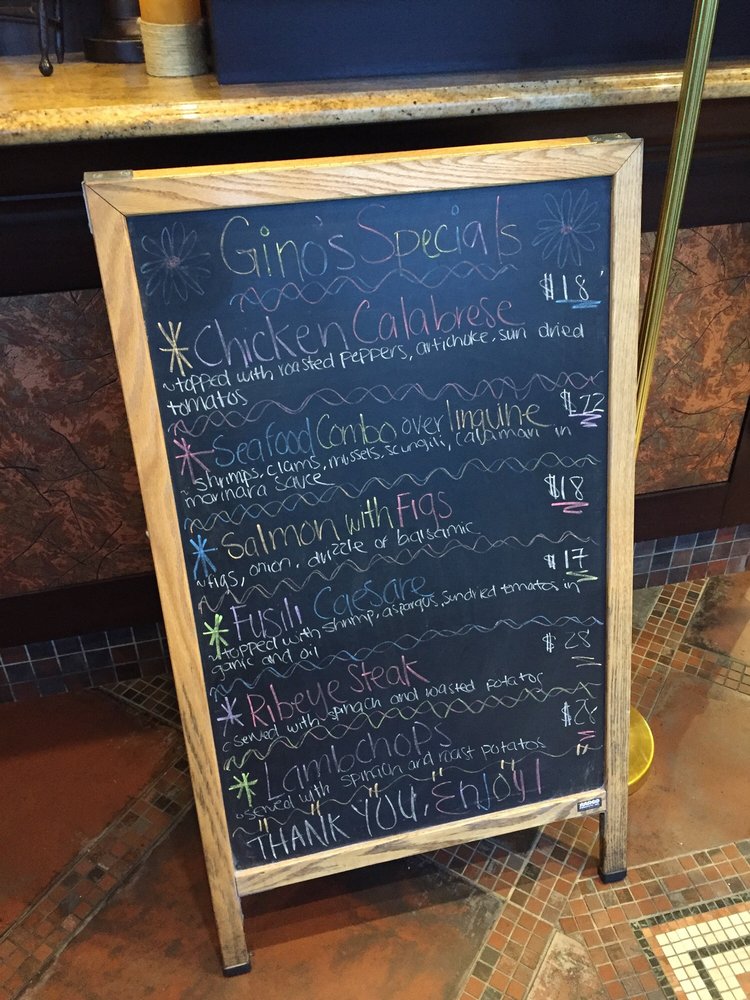 Gino's Specials
$18
Chicken Calabrese
~topped with roasted peppers, artichuke, sun dried
tomatos
$22
Seafood Combo over linguine
~shrimps, clams, mussels, scungili, calamari in
marinara sauce
$18
Salmon with Figs
~Figs, onion, drizzle of balsamic
$17
Fusili Caesare
~topped with shrimp, aspargus, sundried tomatos in
garlic and oil
$28
Ribeye Steak
served with spinach and roasted potator
Lambchops
served with spinach and roast potatos
THANK YOU, Enjoy!